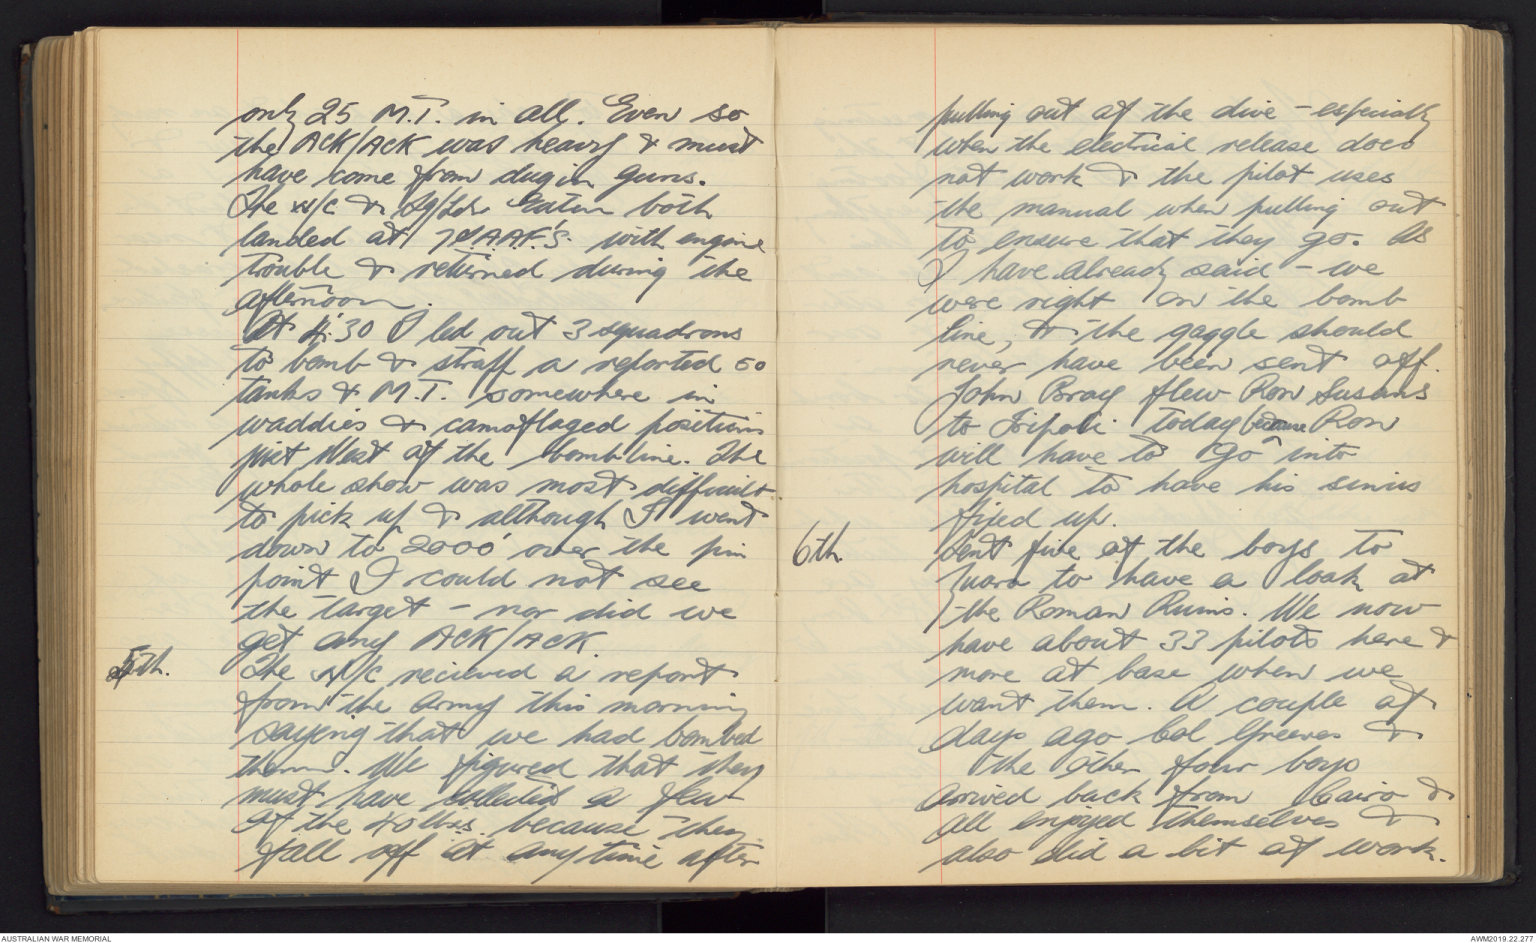 only 25 M.T. in all. Even so
the ACK/ACK was heavy & must
have come from dug in guns.
The W/C & Sq/Ldr Eaton both
landed at 7 S.A.A.F.'S. with engine
trouble & returned during the
afternoon.
At 4.30 I led out 3 squadrons
to bomb & straff a reported 50
tanks & M.T. somewhere in
waddies & camoflaged positions
just West of the bombline. The
whole show was most difficult
to pick up & although I went
down to 2000' over the pin
point I could not see
the target - nor did we
get any ACK/ACK.
5th. The W/C recieved a report
from the Army this morning
saying that we had bombed
them. We figured that they
must have collected a few
of the 40 lbs. because they
fall off at any time after
pulling out of the dive - especially
when the electrical release does
not work & the pilot uses
the manual when pulling out
to ensure that they go. As
I have already said - we
were right on the bomb
line, & the gaggle should
never have been sent off.
John Bray flew Ron Susans
to Tripoli today because Ron
will have to go into
hospital to have his sinus
fixed up.
6th. Sent five of the boys to
Zuara to have a look at
the Roman Ruins. We now
have about 33 pilots here &
more at base when we
want them. A couple of
days ago Col Greeves &
the other four boys
arrived back from Cairo &
all enjoyed themselves &
also did a bit of work.
AUSTRALIAN WAR MEMORIAL
AWM2019.22.277